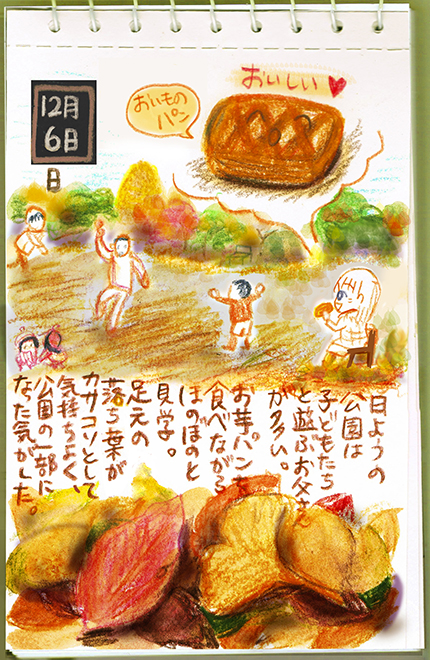 12月
6日
日
おいしい♥
おいもの
パン
日ようの
公園は
子どもたち
と遊ぶお父さん
が多い。
お芋パンを
食べながら
ほのぼのと
見学。
足元の
落ち葉が
カサコソとして
気持ちよく、
公園の一部に
なった気がした。